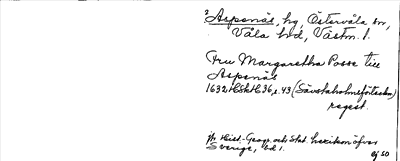 Aspenäs, hg, Östervåla sn,
Våla hd, Västm. l.
Fru Margaretha Posse till
Aspenäs
1632 HSH 36, s. 43 (Sävstaholmsförteckn)
regest.
Jfr Hist.-Geogr. och Stat. lexikon öfver
Sverige, bd 1.
ej SO